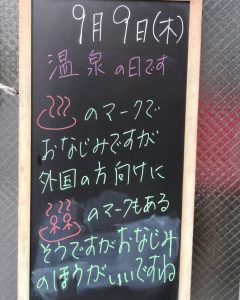 9月9日(木)
温泉の日です
♨のマークで
おなじみですが
外国の方向けに
のマークもある
そうですがおなじみ
のほうがいいですね